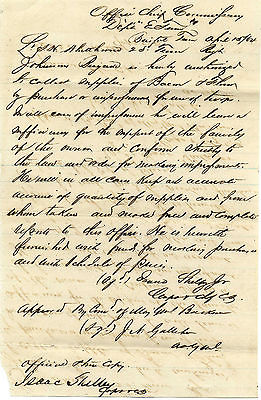 Office Chief Commissary
Dept E Tenn
Bristol Tenn April 18/64
Lt S.K. 23d Tenn Regt
Johnsons Brigade is hereby authorized
to collect supplies of Bacon &
by purchase or impressment for use of troops
In all cases of impressment he will leave a
sufficiency for the support of the family
of the owner and conform strictly to
the law and orders for making impressments
He will in all cases keep an accurate
account of quantity of supplies and from
whom taken and make full and complete
reports to this office. He is herewith
furnished with funds for making purchases
and with schedule of prices.
(Sgd) Isaac Shelby Jr
Capt & A
Approved By Comd of Maj Genl Buckner
(Sgd) J. N. Galleher
A A Genl
Official & true Copy
Isaac Shelby